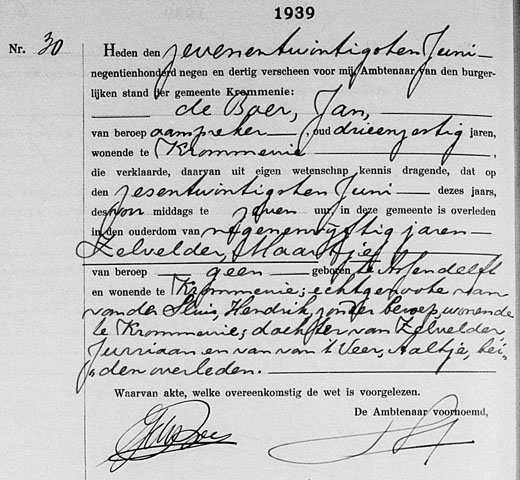 1939
Nr. 30 Heden den zevenentwintigsten Juni
negentienhonderd negen en dertig verscheen voor mij Ambtenaar van den burger-
lijken stand der gemeente Krommenie:
de Boer, Jan,
van beroep aanspreker, oud drieenzestig jaren,
wonende te Krommenie,
die verklaarde, daarvan uit eigen wetenschap kennis dragende, dat op
den zesentwintigsten Juni dezes jaars,
des voor middags te zeven uur, in deze gemeente is overleden
in den ouderdom van negenenvijftig jaren
Zelvelder, Maartje,
van beroep geen geboren te Assendelft
en wonende te Krommenie; echtgenoote van
van der Sluis, Hendrik, zonder beroep, wonende
te Krommenie; dochter van Zelvelder,
Jurriaan en van van 't Veer, Aaltje, bei-
den overleden.
Waarvan akte, welke overeenkomstig de wet is voorgelezen.
De Ambtenaar voornoemd,